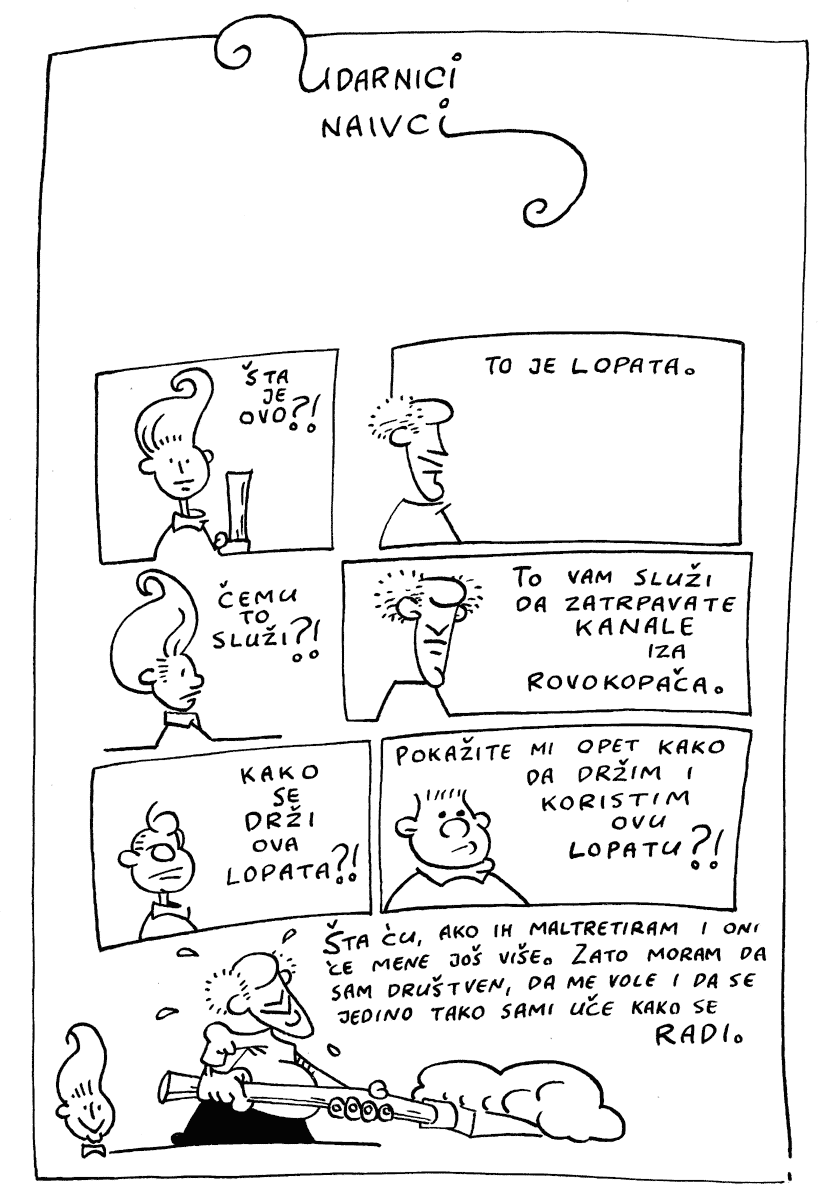 UDARNICI
NAIVCI
ŠTA
JE
OVO?!
TO JE LOPATA.
ČEMU
TO
SLUŽI?!
TO VAM SLUŽI
DA ZATRPAVATE
KANALE
IZA
ROVOKOPAČA.
KAKO
SE
DRŽI
OVA
LOPATA?!
POKAŽITE MI OPET KAKO
DA DRŽIM I
KORISTIM
OVU
LOPATU?!
ŠTA ĆU, AKO IH MALTRETIRAM I ONI
ĆE MENE JOŠ VIŠE. ZATO MORAM DA
SAM DRUŠTVEN, DA ME VOLE I DA SE
JEDINO TAKO SAMI UČE KAKO SE
RADI.